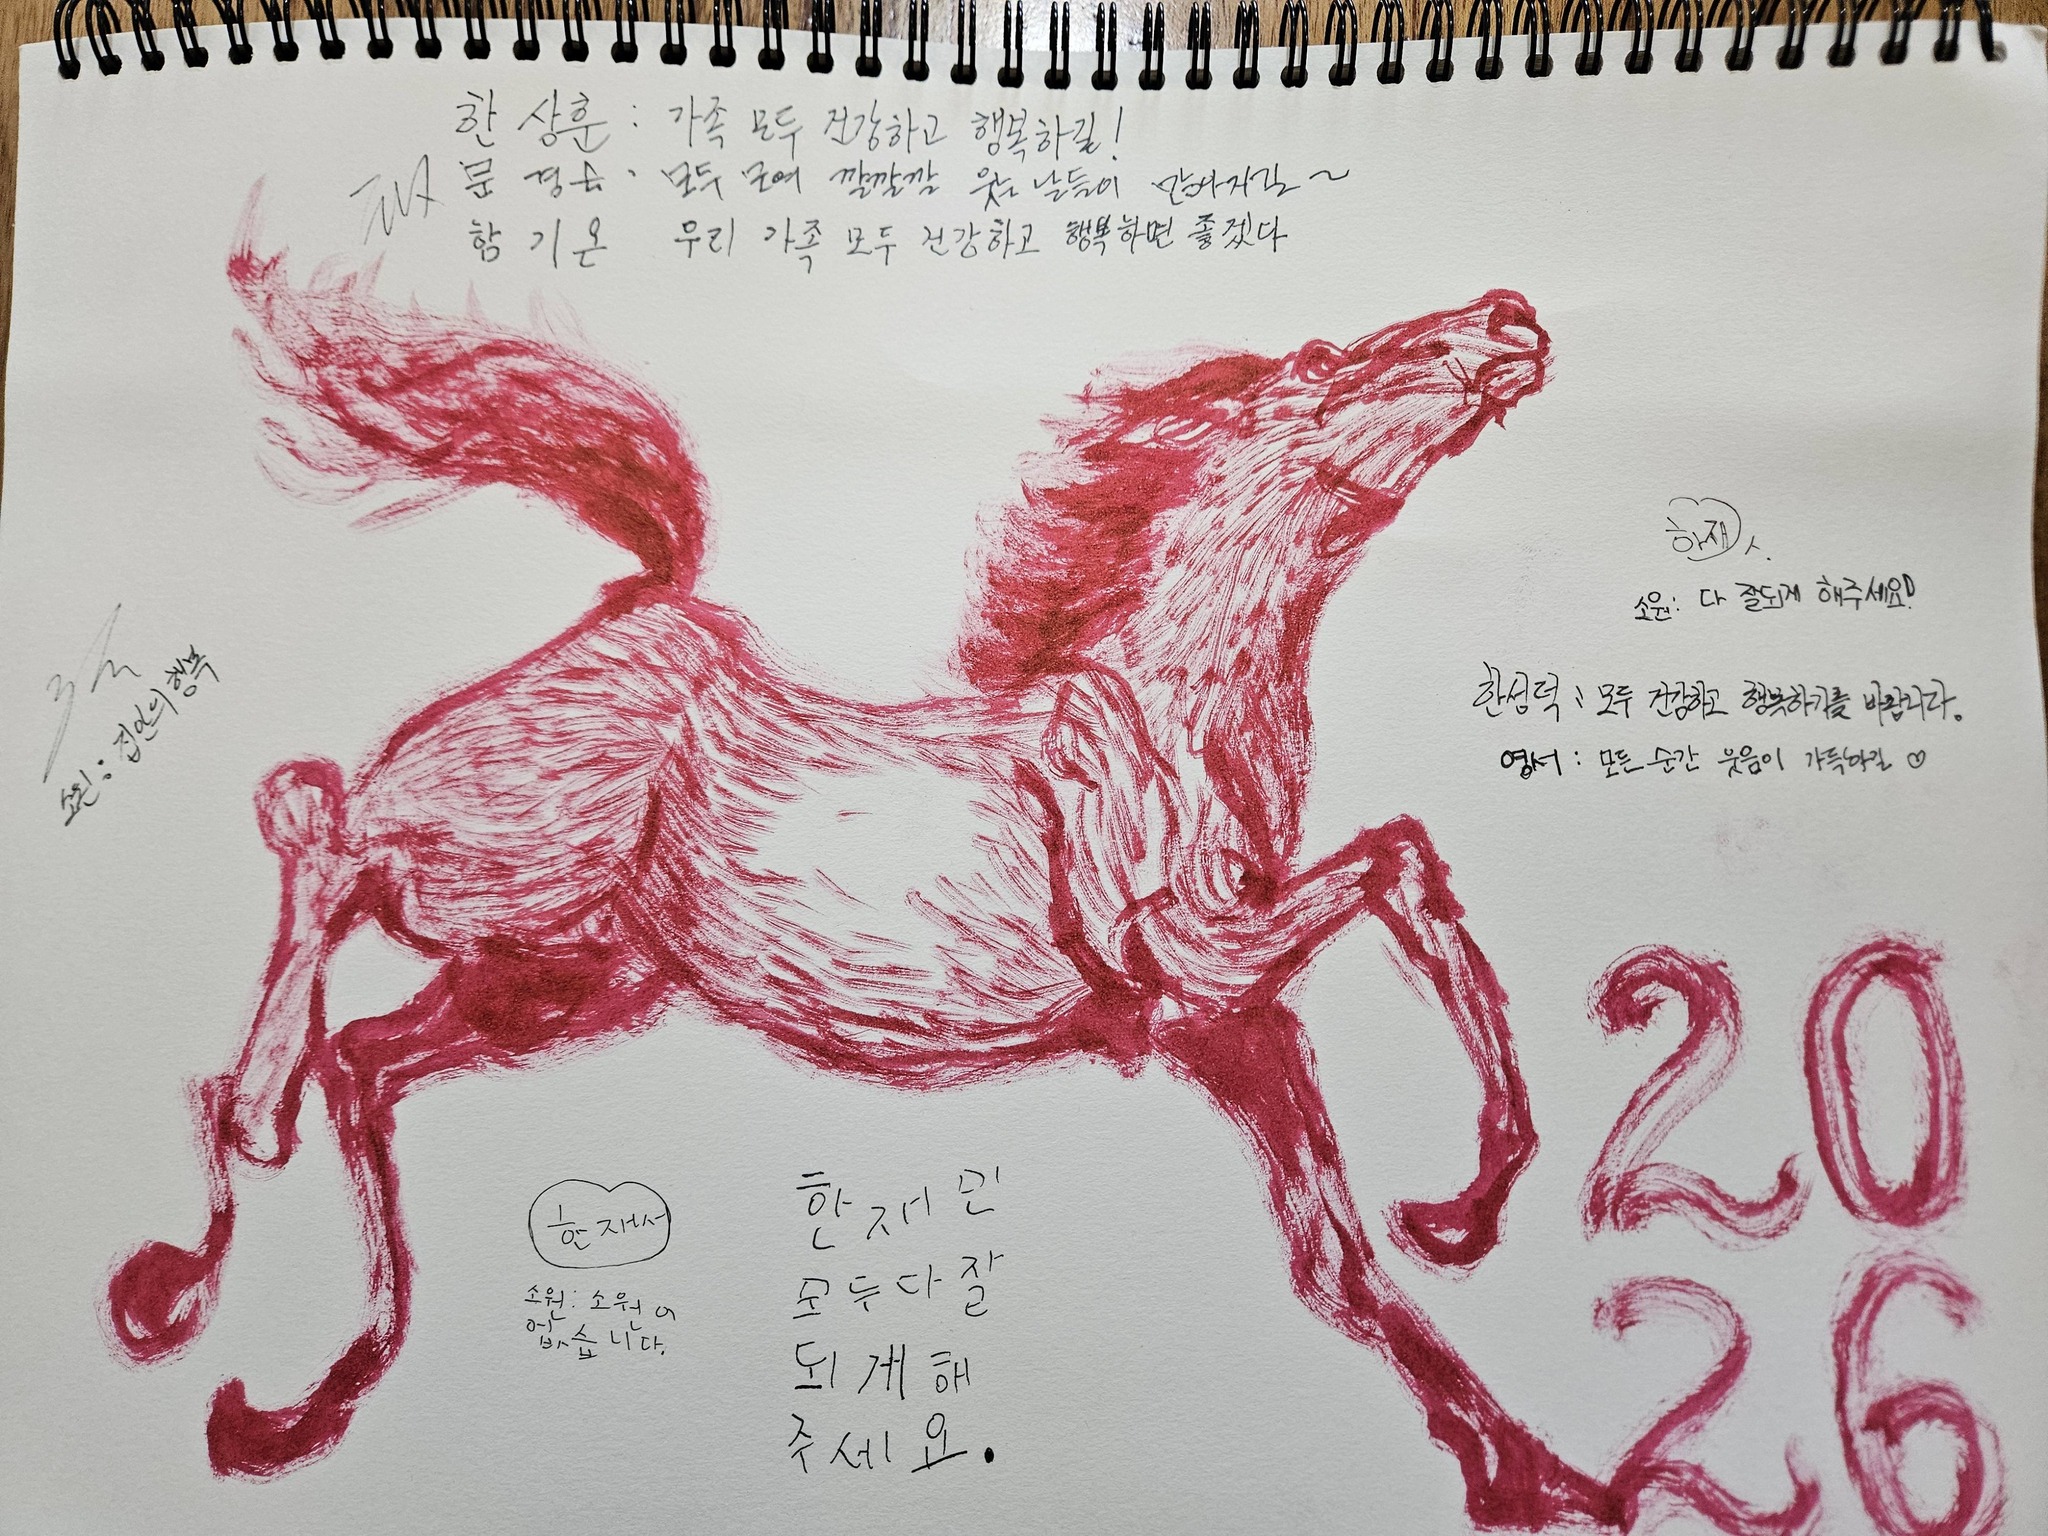 한 상훈 : 가족 모두 건강하고 행복하길!
문 경숙 : 모두 모여 깔깔깔 웃는 날들이 많아지길~
함 기온 우리 가족 모두 건강하고 행복하면 좋겠다
한재
소원: 다 잘되게 해주세요!
한성덕 : 모두 건강하고 행복하기를 바랍니다.
영서 : 모든 순간 웃음이 가득하길 ♡
소원: 집안의 행복
20
26
한재서
소원: 소원이
없습니다.
한재민
모두다잘
되게해
주세요.